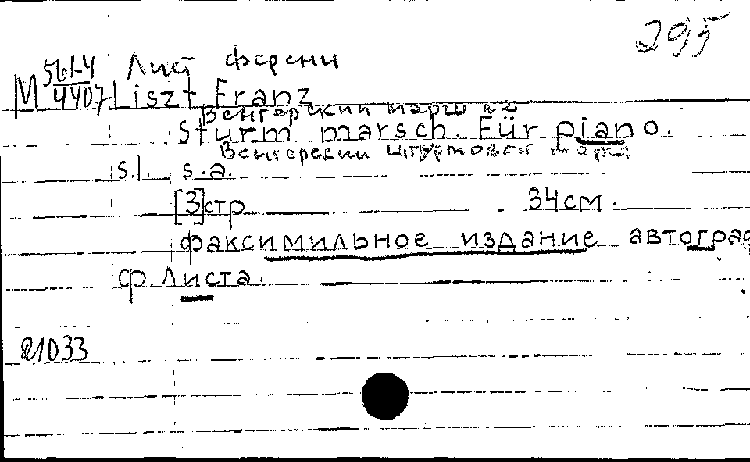 295
Лист Ференц
М 561-4
4407 Liszt Franz
Венгерский марш
Sturm marsch. Für piano.
Венгерский Штурмовой марш
s.l. s.a.
[3]стр 34см.
факсимильное издание автограф
ф. Листа.
21033